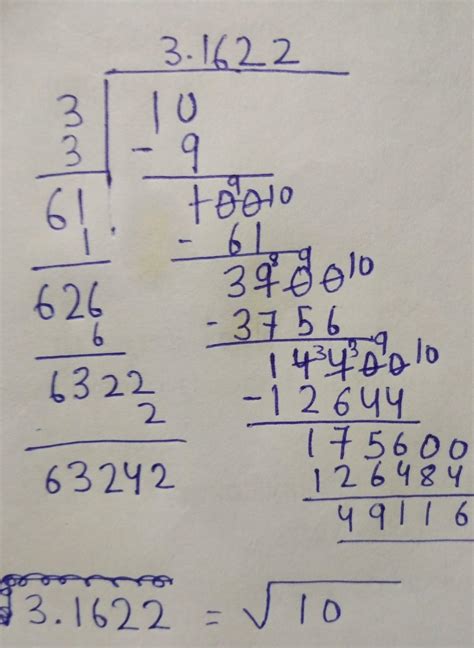 3.1622
3 10
3 - 9
61 100 9 10
1 - 61
626 3900 8 9 10
6 - 3756
6322 14400 3 3 9 10
2 - 12644
63242 175600
126484
49116
3.1622 = √10